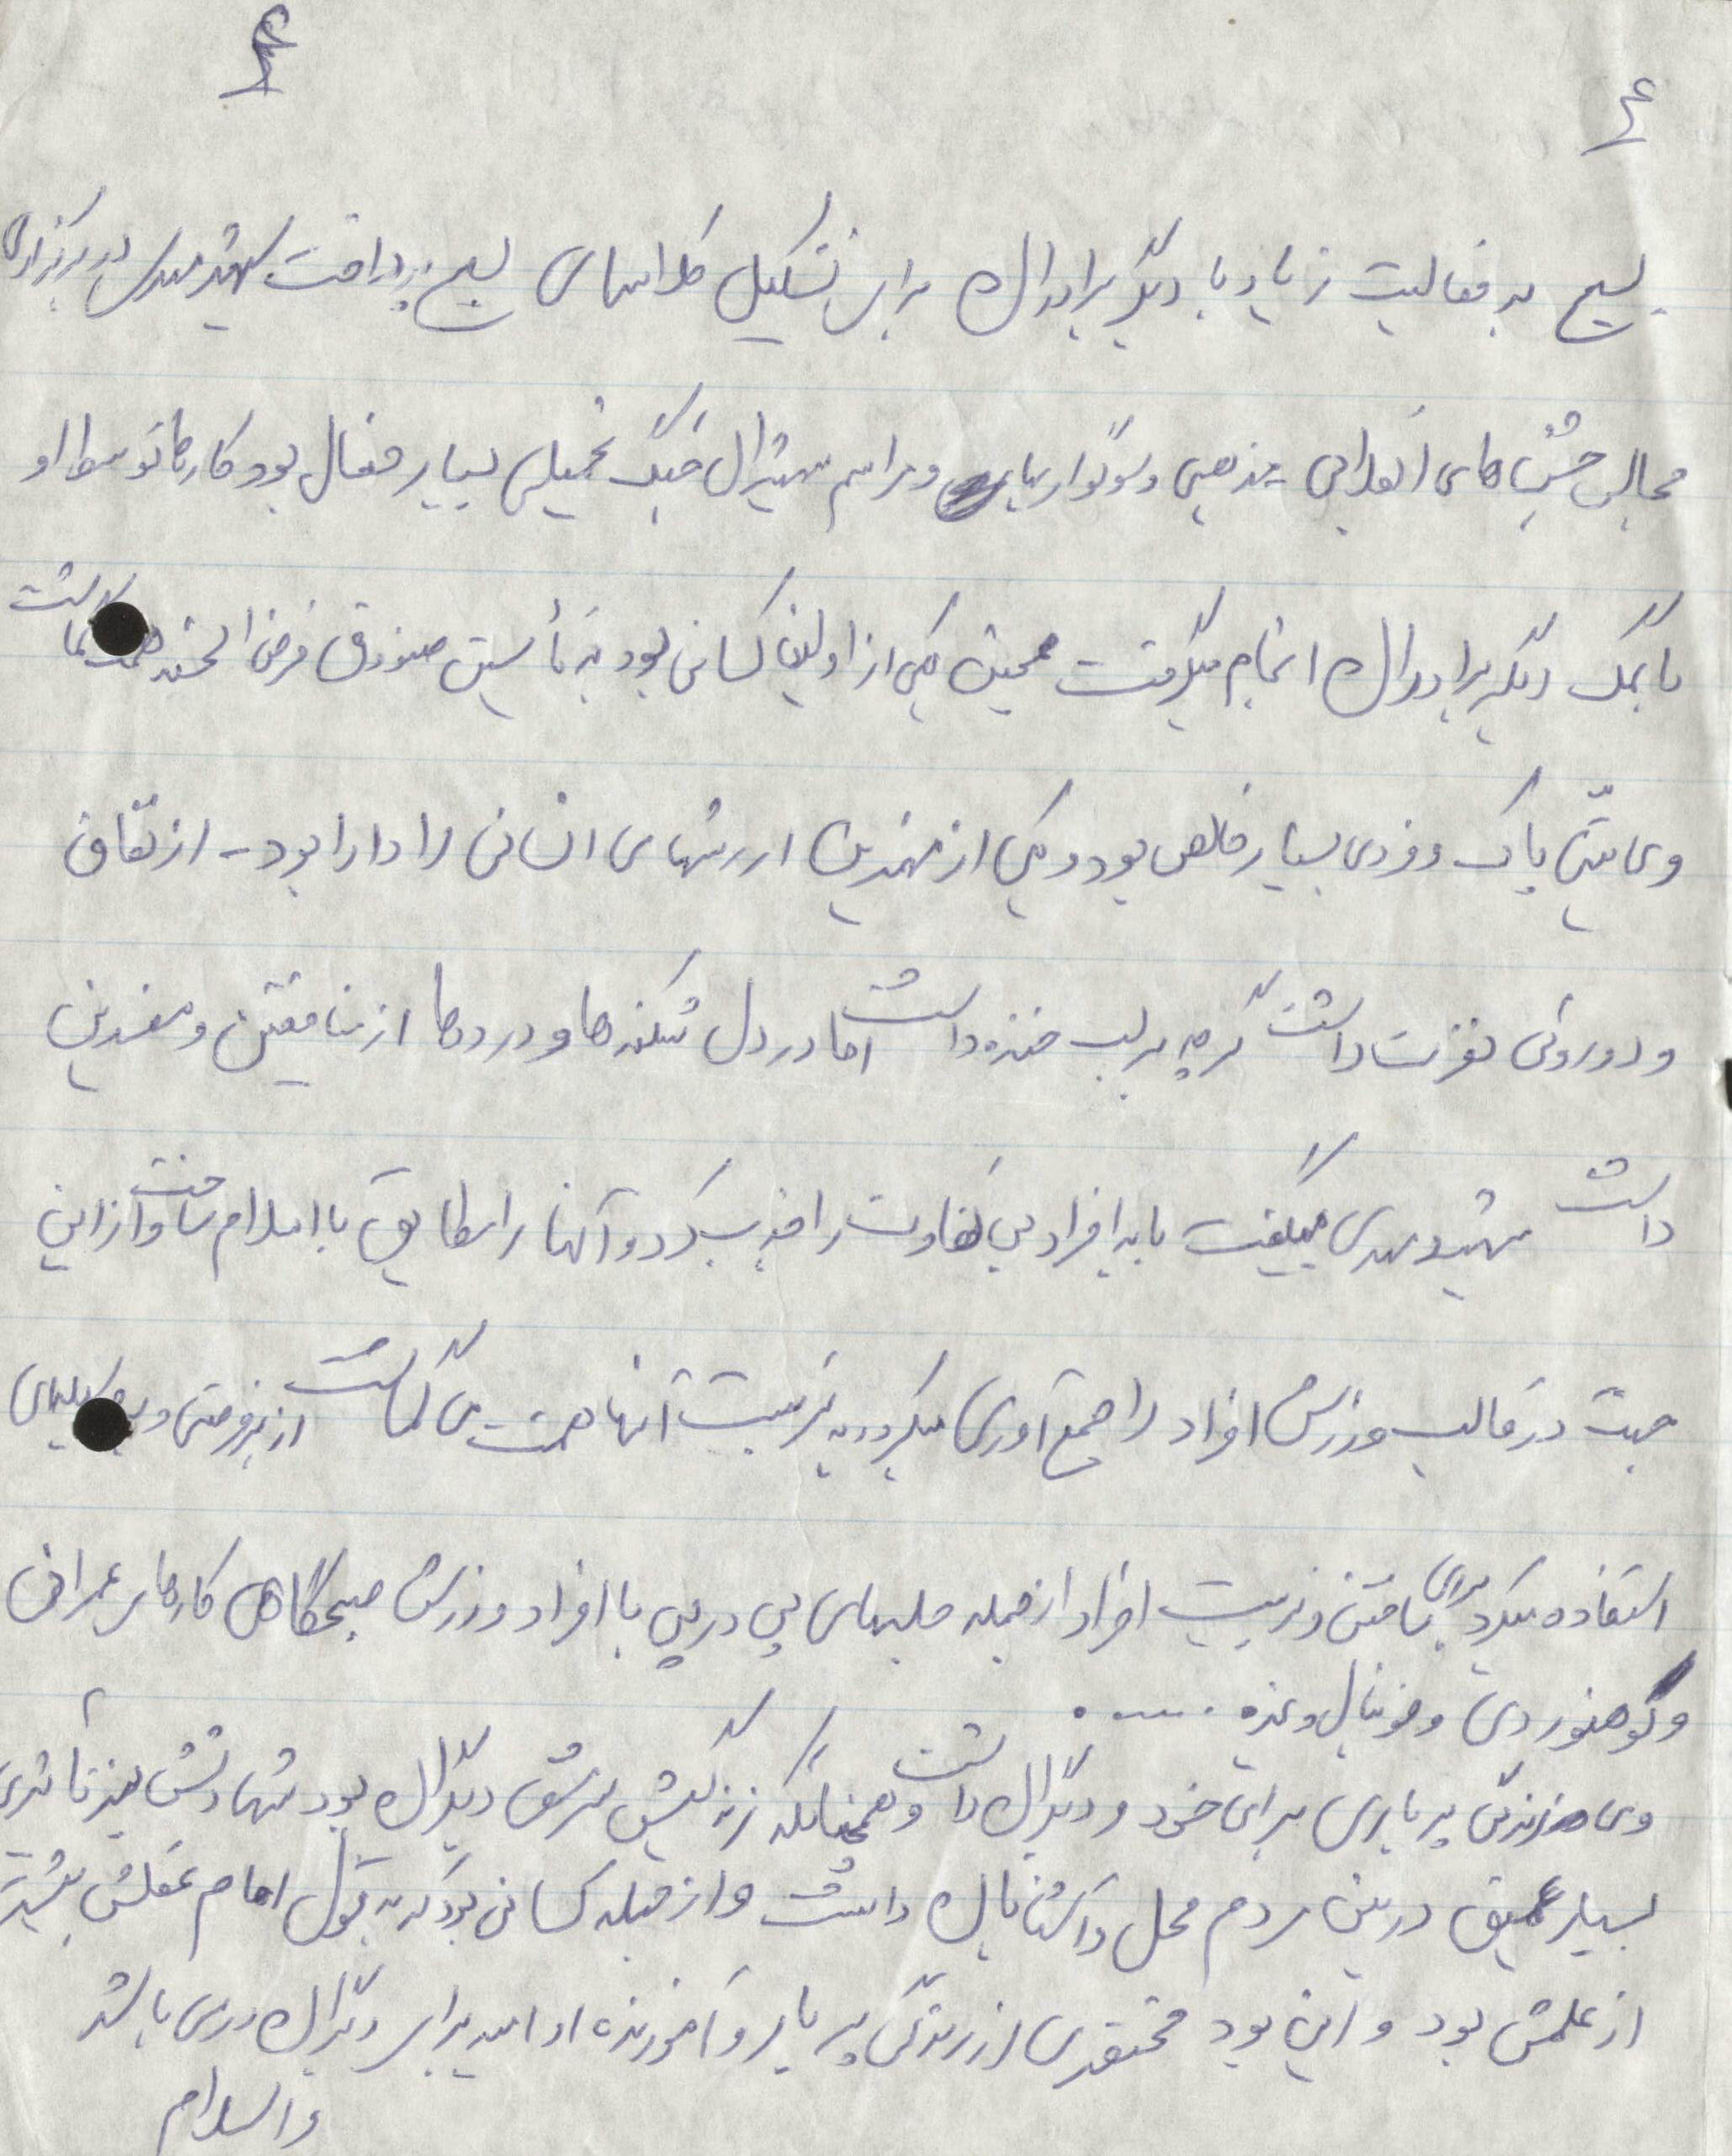 ۴ ۴
بسیج به فعالیت زیاد با دیگر برادران برای تشکیل کلاسهای بسیج پرداخت شهید مهدی در برگزاری
مجالس جشن های انقلابی مذهبی و سوگواریهای و مراسم شهیدان جنگ تحمیلی بسیار فعال بود کارها توسط او
با کمک دیگر برادران انجام میگرفت همچنین یکی از اولین کسانی بود به تأسیس صندوق قرض الحسنه همت گماشت
وی نیتی پاک و فردی بسیار خالص بود و یکی از مهمترین ارزشهای انسانی را دارا بود - از نفاق
و دوروئی نفرت داشت گرچه بر لب خنده داشت اما در دل شکنه ها و دردها از منافقین و مفسدین
داشت شهید مهدی میگفت باید افراد بی تفاوت را جذب کرد و آنها را مطابق با اسلام ساخت و از این
جهت در قالب ورزش افراد را جمع آوری میکرد و به تربیت آنها همت می گماشت از هر فرصتی و
استفاده میکرد برای ساختن و تربیت افراد از جمله جلسهای پی در پی با افراد و ورزش صبحگاهی کارهای عمرانی
و کوهنوردی و فوتبال و غیره .....
وی زندگی پر باری برای خود و دیگران داشت و همچنانکه زندگیش سرمشق دیگران بود شهادتش نیز تأثیری
بسیار عمیق در بین مردم محل و آشنایان داشت و از جمله کسانی بود که به قول امام عملش بیشتر
از علمش بود و این بود مختصری از زندگی پر بار و آموزنده او امید برای دیگران درسی باشد
والسلام